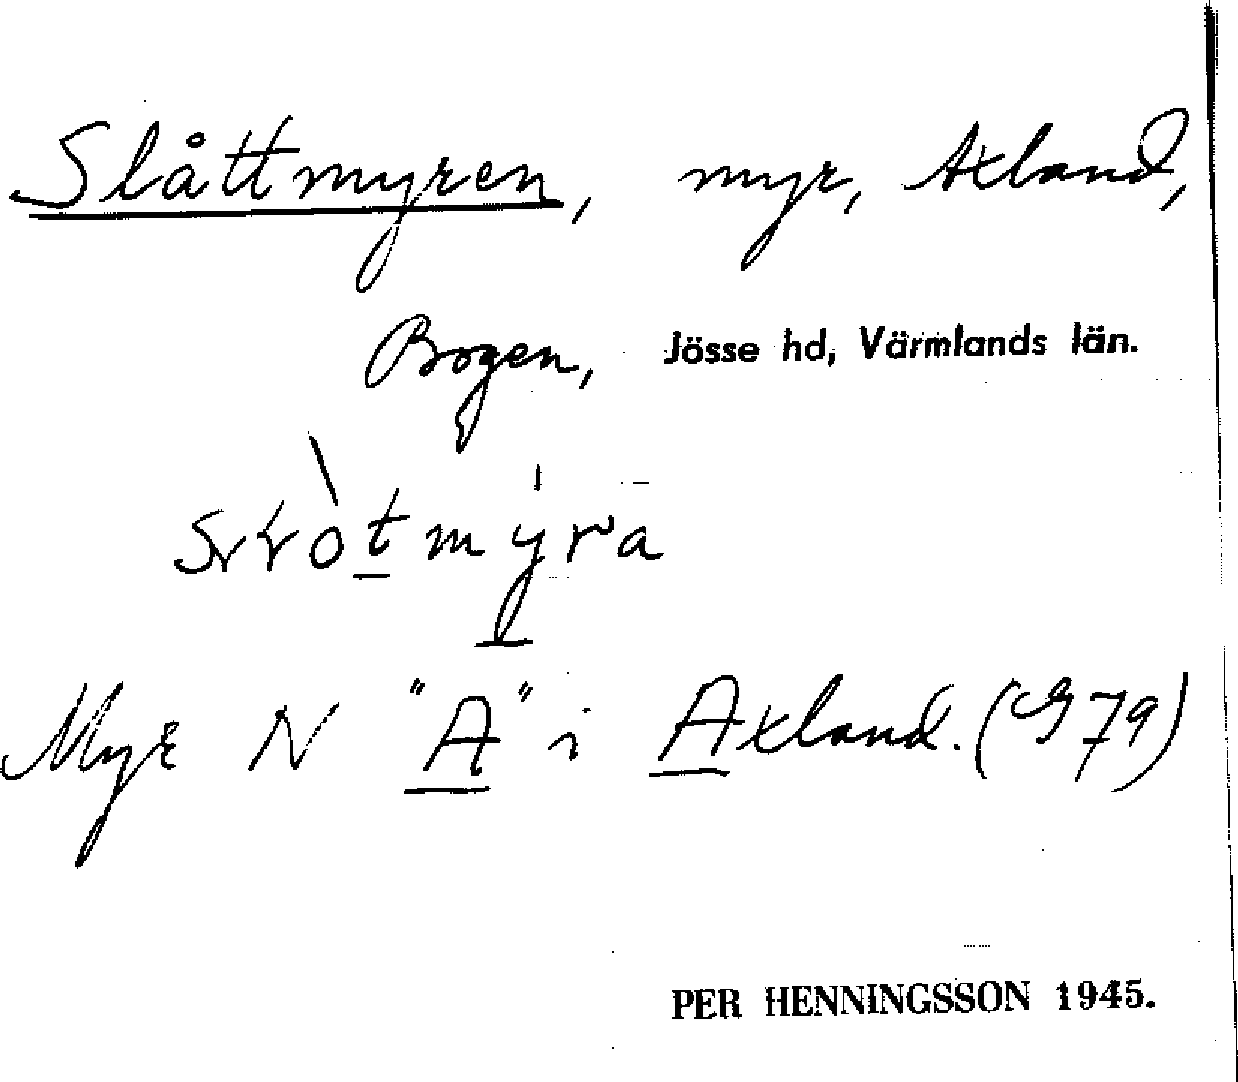 Slåttmyren, myr, Axland,
Bogen, Jösse hd, Värmlands län.
Myr N "A" i Axland. (G 79)
PER HENNINGSSON 1945.